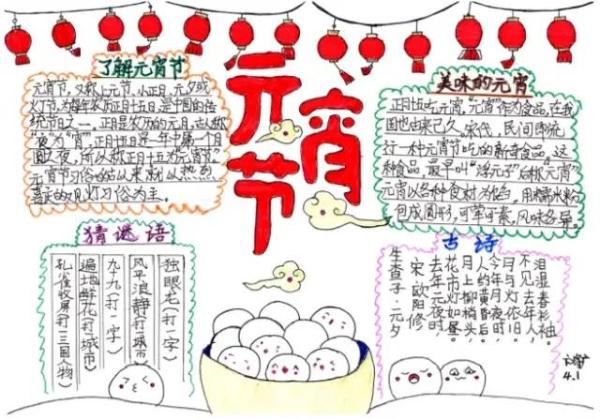 元宵节
了解元宵节
元宵节，又称上元节，小正月，元夕或
灯节，为每年农历正月十五日，是中国的传
统节日之一。正月是农历的元月，古人称
"夜"为"宵"，正月十五日是一年中第一个月
圆之夜，所以称正月十五为"元宵节"。
元宵节习俗以来就以热烈
喜庆的观灯习俗为主。
美味的元宵
正月十五吃元宵，"元宵"作为食品，在我
国也由来已久。宋代，民间即流
行一种元宵节吃的新奇食品。这
种食品，最早叫"浮元子"后称"元宵"
元宵以各种食材为馅，用糯米粉
包成圆形，可荤可素，风味各异。
猜谜语
独眼龙(打一字)
风平浪静(打一城市)
九十九(打一字)
遍地鲜花(打一城市)
孔雀收屏(打一三国人物)
古诗
生查子·元夕
宋 欧阳修
去年元夜时，
花市灯如昼。
月上柳梢头，
人约黄昏后。
今年元夜时，
月与灯依旧。
不见去年人，
泪湿春衫袖。
4.1